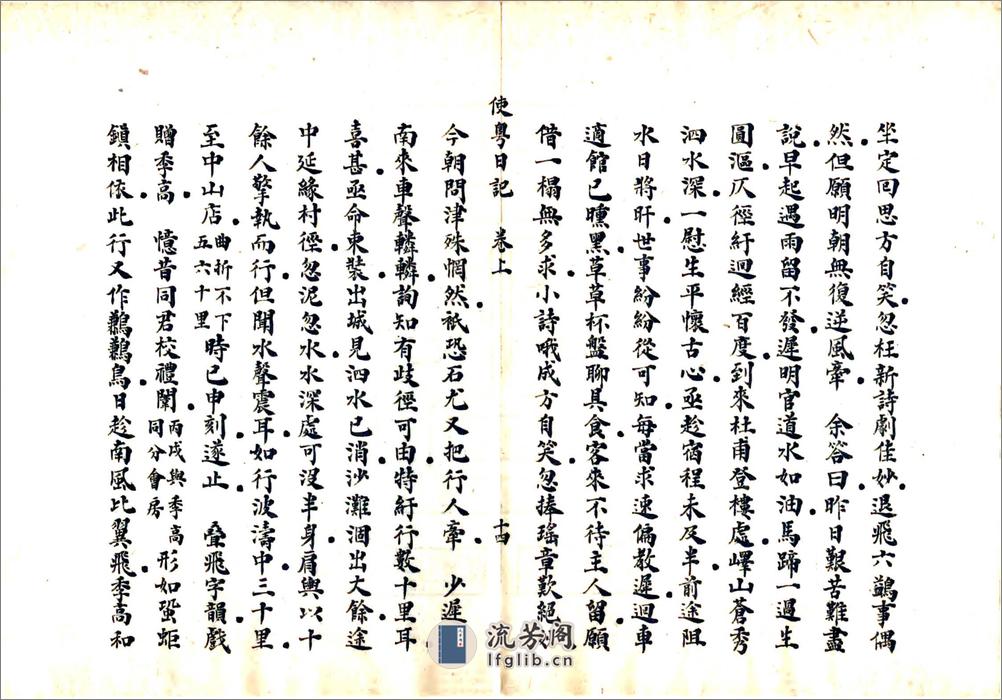 坐定回思方自笑忽枉新詩劇佳妙退飛六鷁事偶
然但願明朝無復逆風牽　余答曰昨日艱苦難盡
說早起遇雨留不發遲明官道水如油馬蹄一過生
圓漚仄徑紆迴經百度到來杜甫登樓處嶧山蒼秀
泗水深一慰生平懷古心亟趁宿程未及半前途阻
水日將旰世事紛紛從可知每當求速偏教遲迴車
適館已曛黑草草杯盤聊具食客來不待主人留願
借一榻無多求小詩哦成方自笑忽捧瑤章歎絕
使粵日記　卷上　十四
今朝問津殊惘然衹恐石尤又把行人牽　少遲
南來車聲轔轔詢知有歧徑可由特紆行數十里耳
喜甚亟命束裝出城見泗水已消沙灘涸出大餘途
中延緣村徑忽泥忽水水深處可沒半身肩輿以十
餘人擎執而行但聞水聲震耳如行波濤中三十里
至中山店曲折不下五六十里時已申刻遂止　叠飛字韻戲
贈季高　憶昔同君校禮闈丙戌與季高同分會房形如蛩蚷
鎖相依此行又作鶼鶼鳥日趁南風比翼飛季高和
流芳阁
lfglib.cn